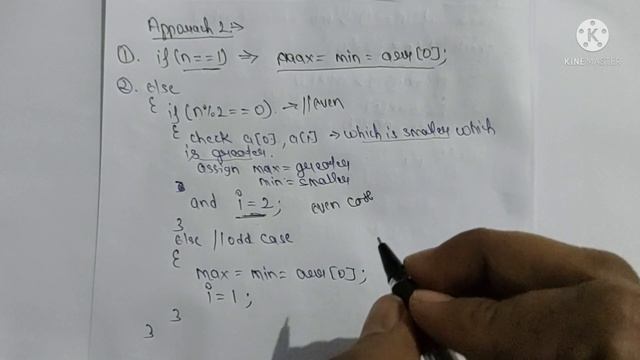 Approach 2:→
①. if(n==1) ⇒ max = min = arr[0];
②. else
{ if(n%2==0) → //even
{ check a[0], a[1] → which is smaller which
is greater.
assign max = greater
min = smaller
and i = 2; even case
}
else //odd case
{
max = min = arr[0];
i = 1;
}
}
KINEMASTER